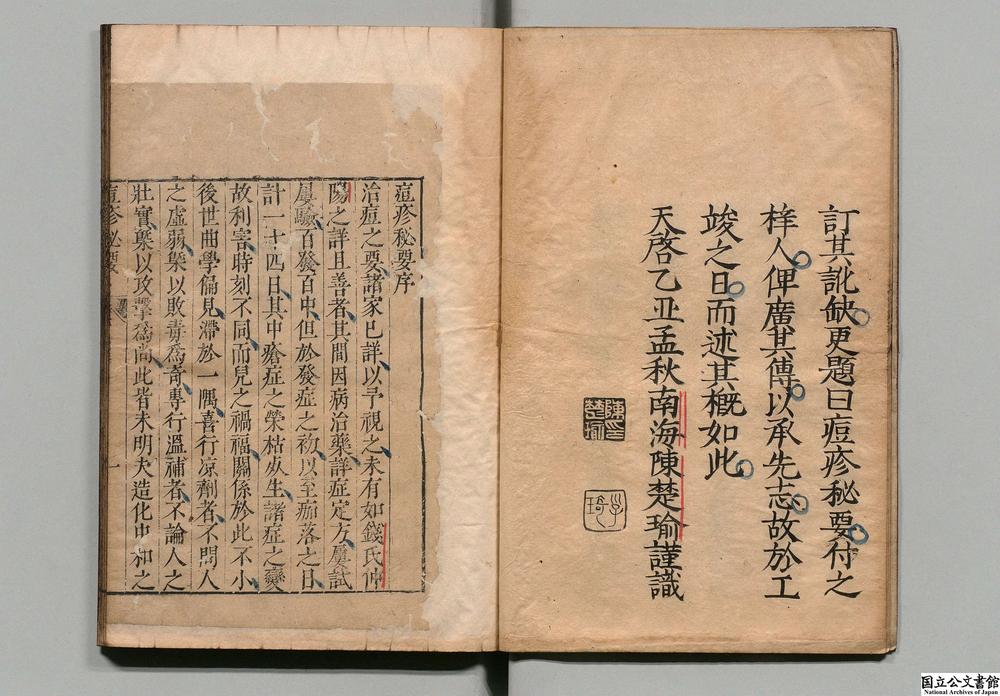 訂其訛缺更題曰痘疹秘要付之
梓人俾廣其傳以承先志故於工
竣之日而述其槪如此
天啓乙丑孟秋南海陳楚瑜謹識
痘疹秘要序
治痘之要諸家已詳以予視之未有如錢氏仲
陽之詳且善者其間因病治藥詳症定方屢試
屢驗百發百中但於發症之初以至痂落之日
計一十四日其中瘡症之榮枯必生諸症之變
故利害時刻不同而兒之禍福關係於此不小
後世曲學偏見滯於一隅喜行凉劑者不問人
之虛弱槩以敗毒爲奇專行溫補者不論人之
壯實槩以攻擊爲尚此皆未明夫造化中和之
痘疹秘要
一
国立公文書館
National Archives of Japan